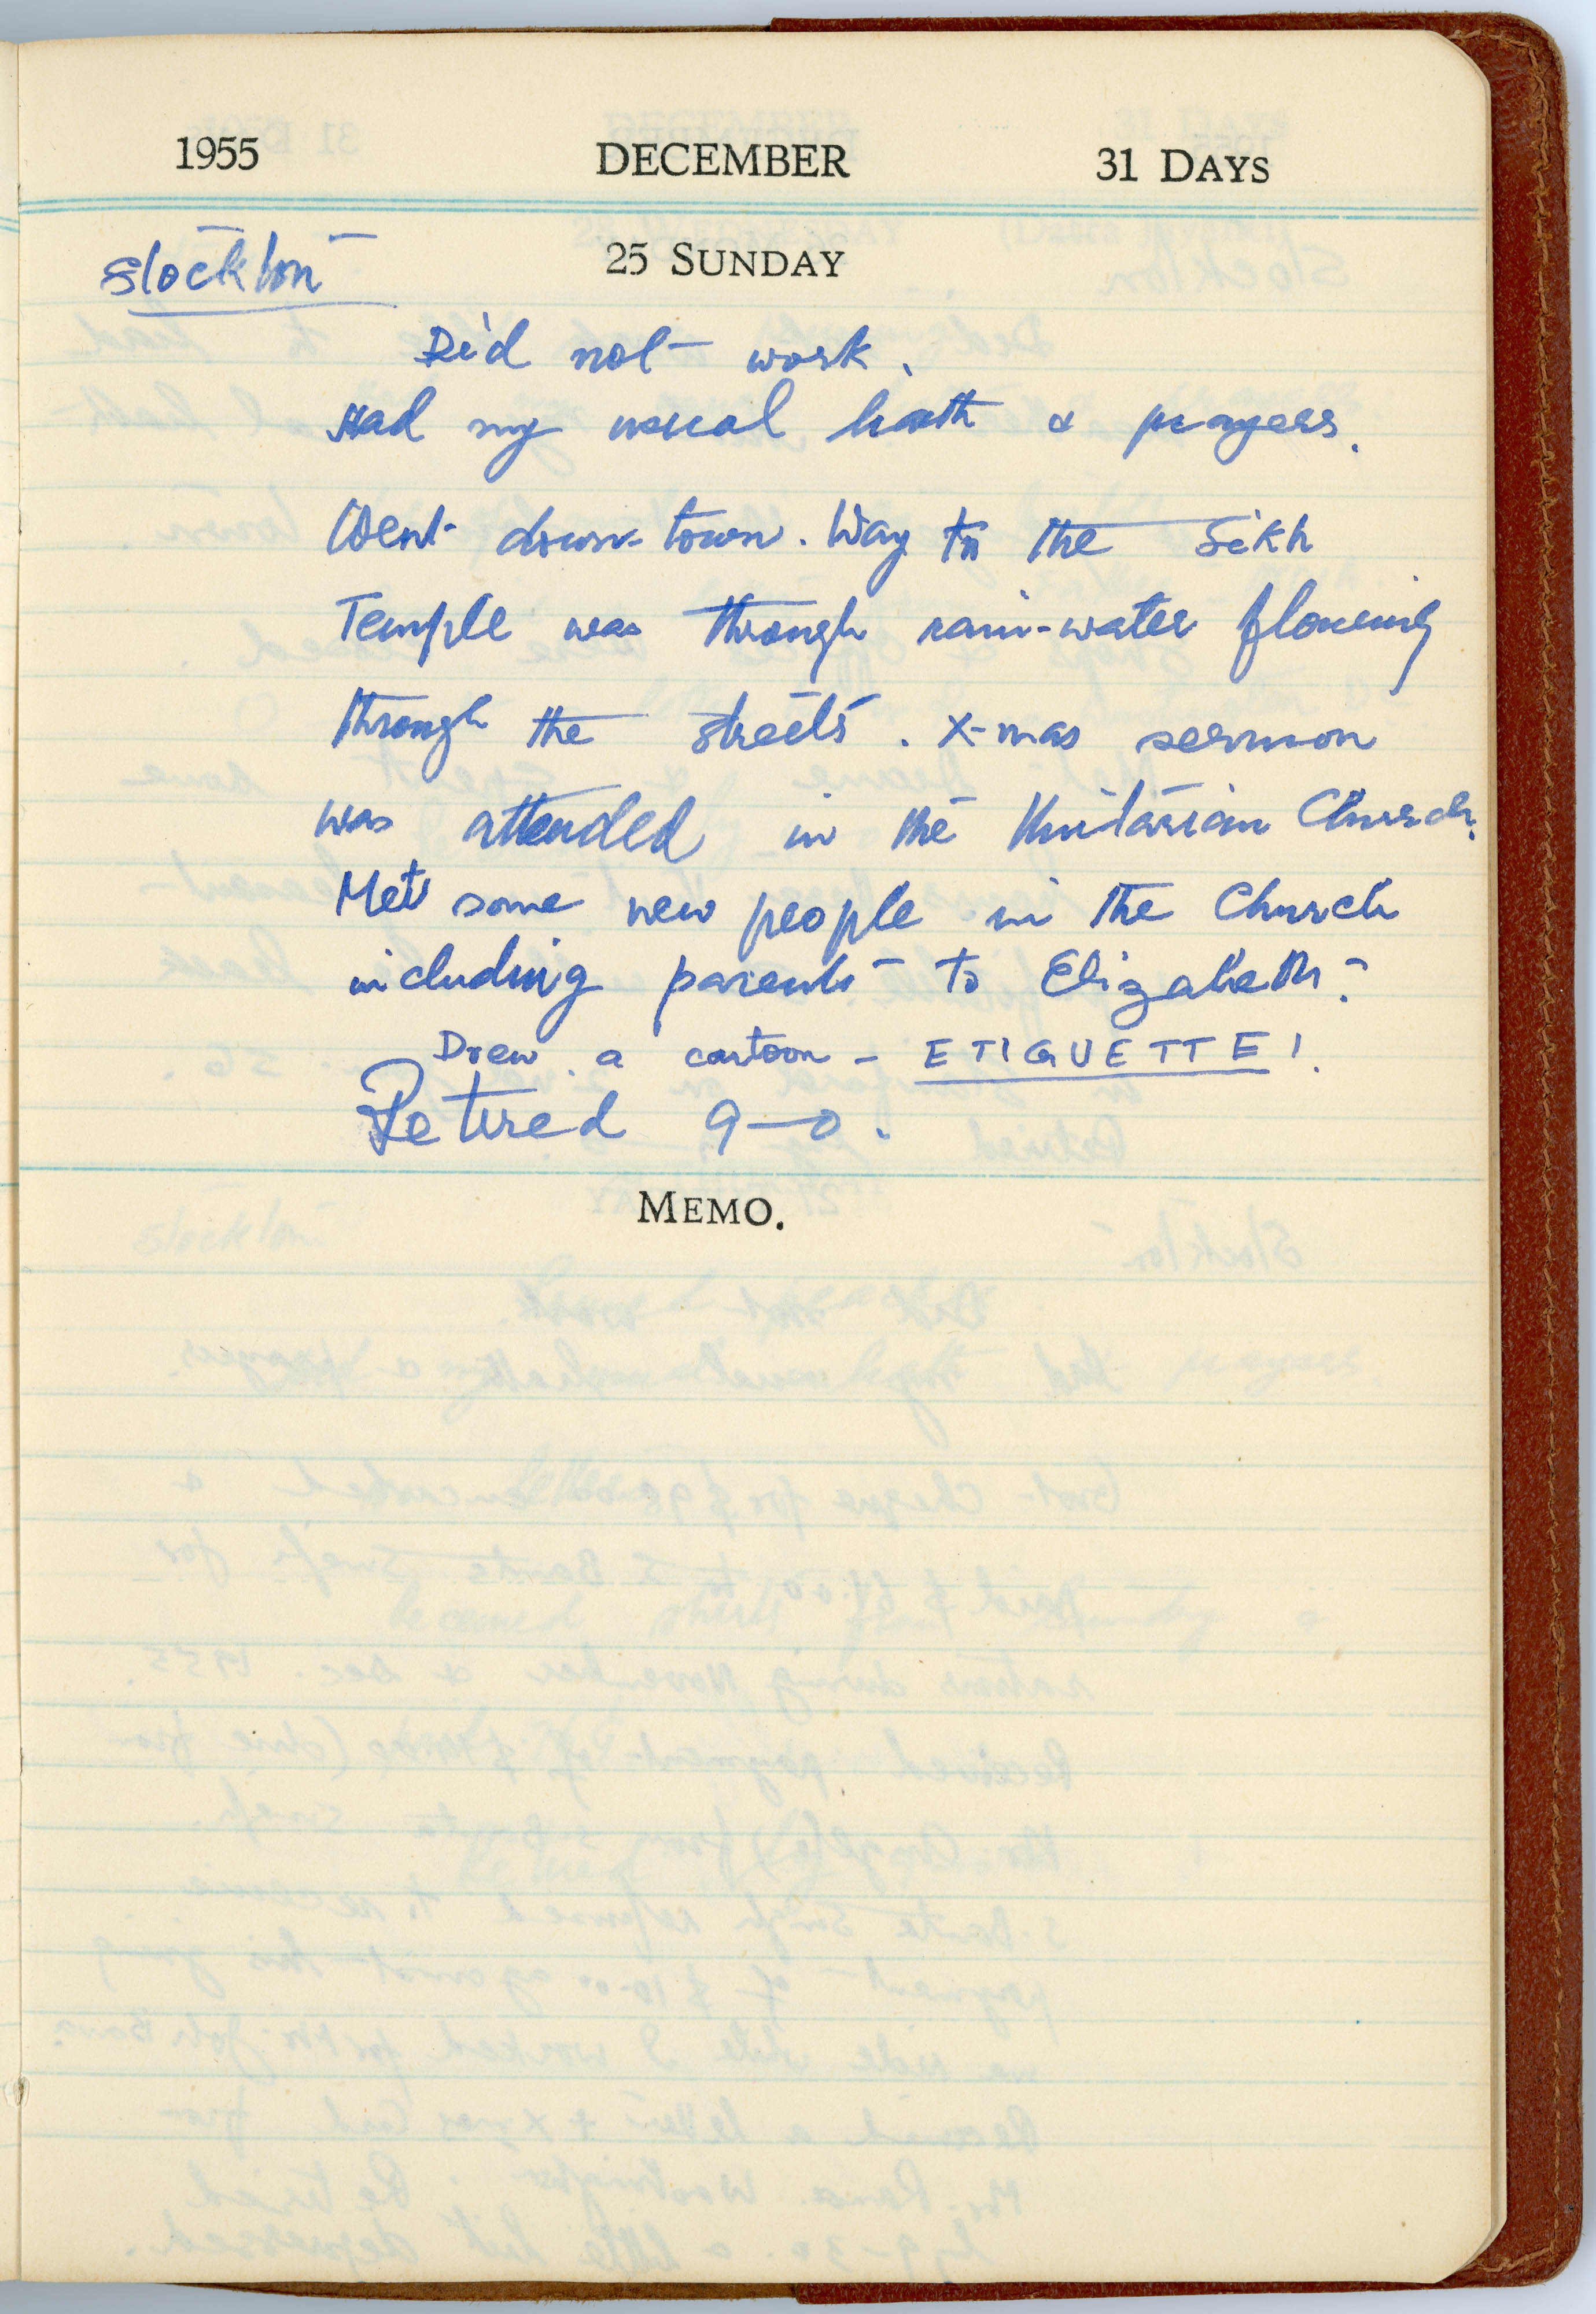 1955 DECEMBER 31 DAYS
Stockton 25 SUNDAY
Did not work.
Had my usual bath & prayers.
Went down-town. Way to the Sikh
Temple was through rain-water flowing
through the streets. X-mas sermon
was attended in the Unitarian Church.
Met some new people in the Church
including parents to Elizabeth.
Drew a cartoon - ETIQUETTE!
Retired 9-0.
MEMO.